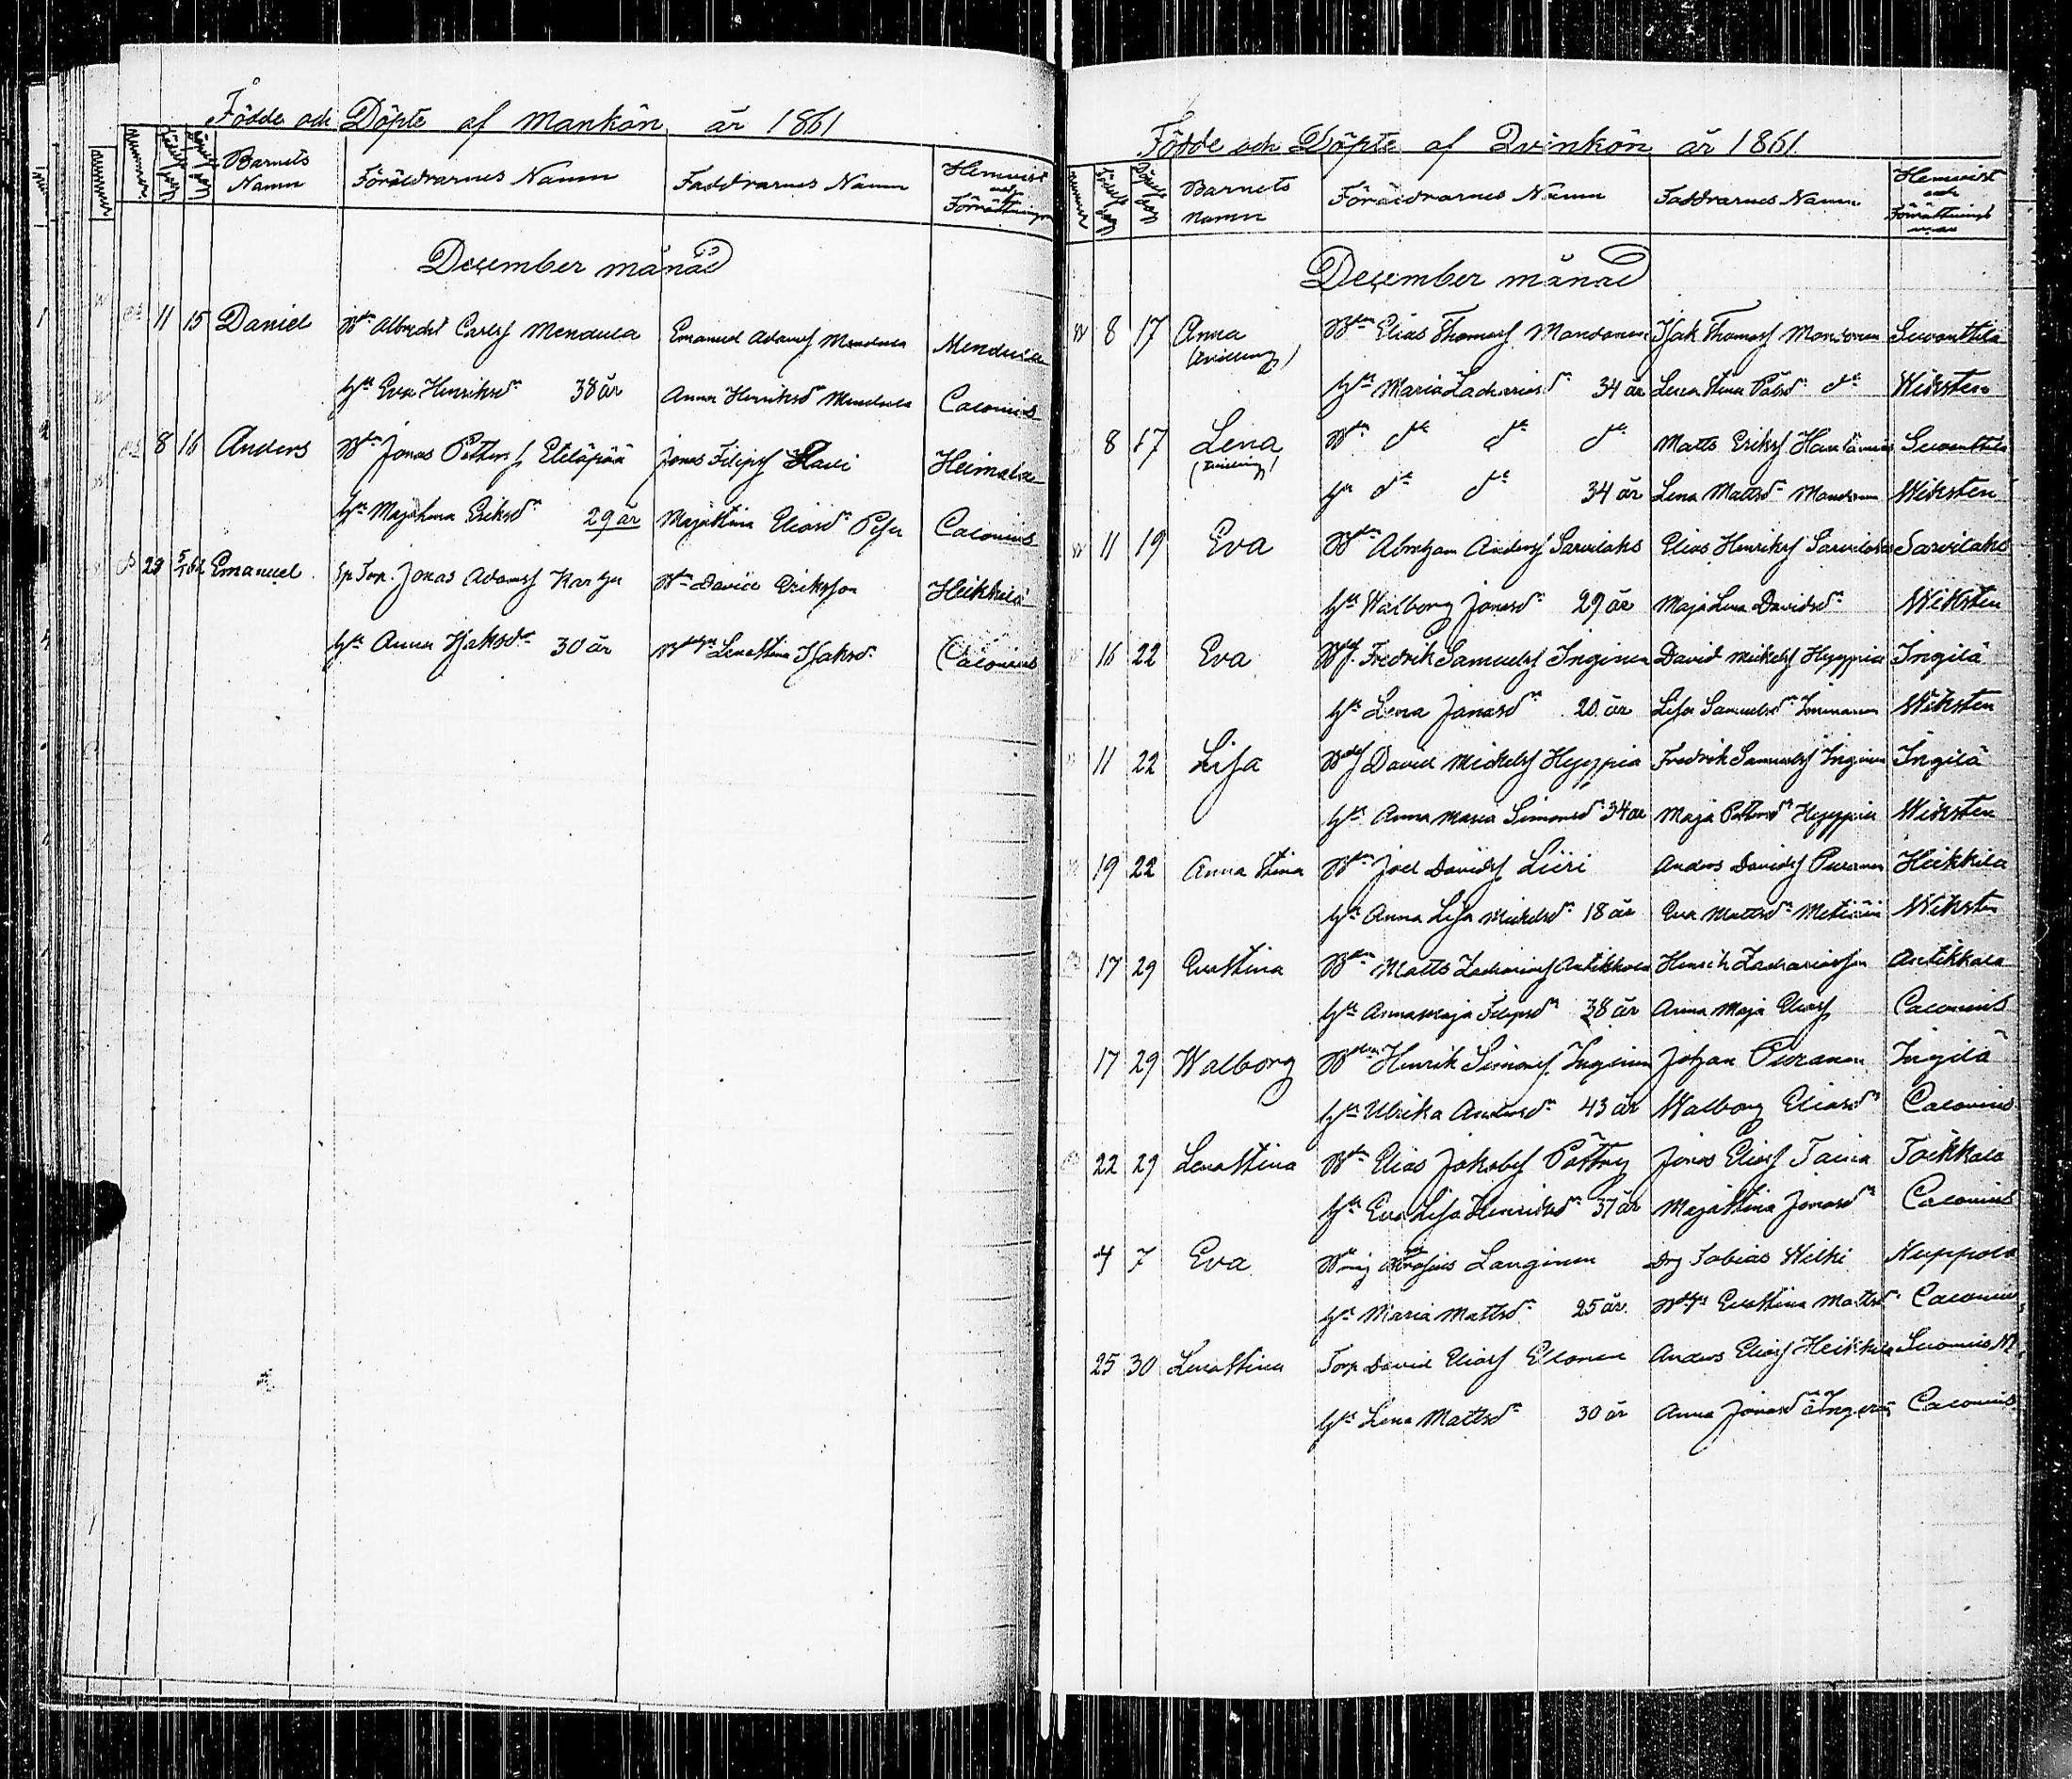 Födde och Döpte af Mankön år 1861
Barnets Namn Föräldrarnes Namn Faddrarnes Namn Hemvist och Förrättnings
December månad
11 15 Daniel Bdn Albrecht Carlsf Mendula Emanuel Adamsf Mendula Mendula
hu Eva Henriksdr 38 år Anna Henriksdr Mendula Calonius
8 16 Anders Bdn Jonas Petters Eteläpää Jonas Filipsf Heimala
hu Maja Lena Eriksdr 29 år Majastina Eliasdr Calonius
29 5/1 62 Emanuel Sp Torp. Jonas Adamsf Bdn David Eriksson Heikkilä
hu Anna Isaksdr 30 år Lenastina Isaksdr Calonius
Födde och Döpte af Qvinkön år 1861.
nummer Barnets namn Föräldrarnes Namn Faddrarnes Namn Hemvist och Förrättnings man
December månad
8 17 Anna (tvilling) Bdn Elias Thomasf Mandonen Isak Thomasf Mandonen Suonttila
hu Maria Zachariasdr 34 år Lena Stina do Wiksten
8 17 Lena (tvilling) Bdn do do do Matts Eriksf Suonttila
hu do do 34 år Lena Mattsdr Wiksten
11 19 Eva Bdn Abraham Andersf Sarvilaks Elias Henriksf Sarvilaks Sarvilaks
hu Walborg Jonasdr 29 år Maja Lena Davidsdr Wiksten
16 22 Eva Fredrik Samuelsf Inginen David Mickelsf Hyyppiä Ingilä
hu Lena Jonasdr 20 år Lisa Samuelsdr Wiksten
11 22 Lisa David Mickelsf Hyyppiä Fredrik Samuelsf Inginen Ingilä
hu Anna Maria Simonsdr 34 år Maja Pettersdr Hyyppiä Wiksten
19 22 Anna Stina Bdn Joel Davidsf Liiri Anders Davidsf Puranen Heikkilä
hu Anna Lisa Mickelsdr 18 år Eva Mattsdr Wiksten
17 29 Evastina Bdn Matts Zachariasf Anttikkala Henrik Zachariasson Anttikkala
hu Annamaja Filipsdr 38 år Anna Maja Eliasf Calonius
17 29 Walborg Henrik Simonsf Inginen Johan Puranen Ingilä
hu Ulrika Andersdr 43 år Walborg Eliasdr Calonius
22 29 Lenastina Bdn Elias Jakobsf Pöttry Jonas Eliasf Taina Toikkala
hu Eva Lisa Henriksdr 37 år Majastina Jonasdr Calonius
4 7 Eva Langinen Drg Tobias Wilki Nuppola
hu Maria Mattsdr 25 år. Evastina Mattsdr Calonius
25 30 Lenastina Torp David Eliasf Ellonen Anders Eliasf Heikkilä
hu Lena Mattsdr 30 år Anna Jonasdr Calonius